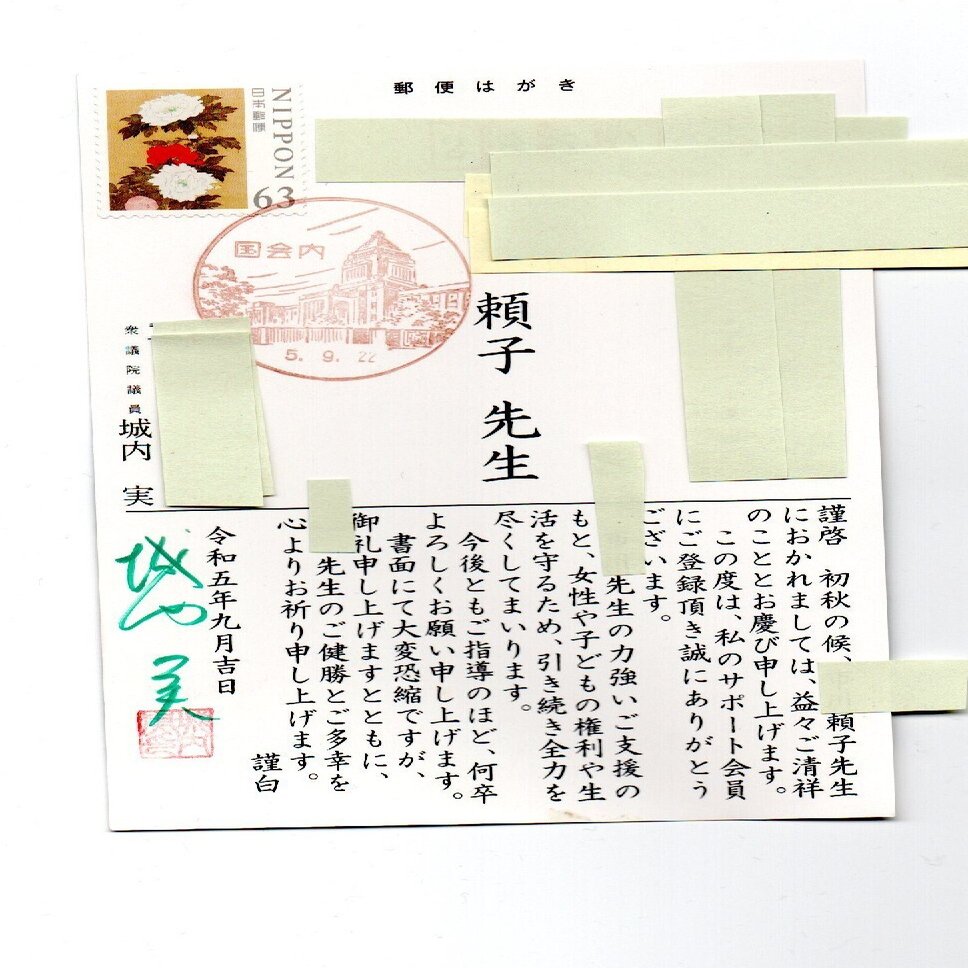 郵便はがき
NIPPON
日本郵便
63
国会内
5.9.22
頼子 先生
衆議院議員
城内 実
謹啓 初秋の候、頼子先生
におかれましては、益々ご清祥
のこととお慶び申し上げます。
この度は、私のサポート会員
にご登録頂き誠にありがとう
ございます。
先生の力強いご支援の
もと、女性や子どもの権利や生
活を守るため、引き続き全力を
尽くしてまいります。
今後ともご指導のほど、何卒
よろしくお願い申し上げます。
書面にて大変恐縮ですが、
御礼申し上げますとともに、
先生のご健勝とご多幸を
心よりお祈り申し上げます。
謹白
令和五年九月吉日
城内 実